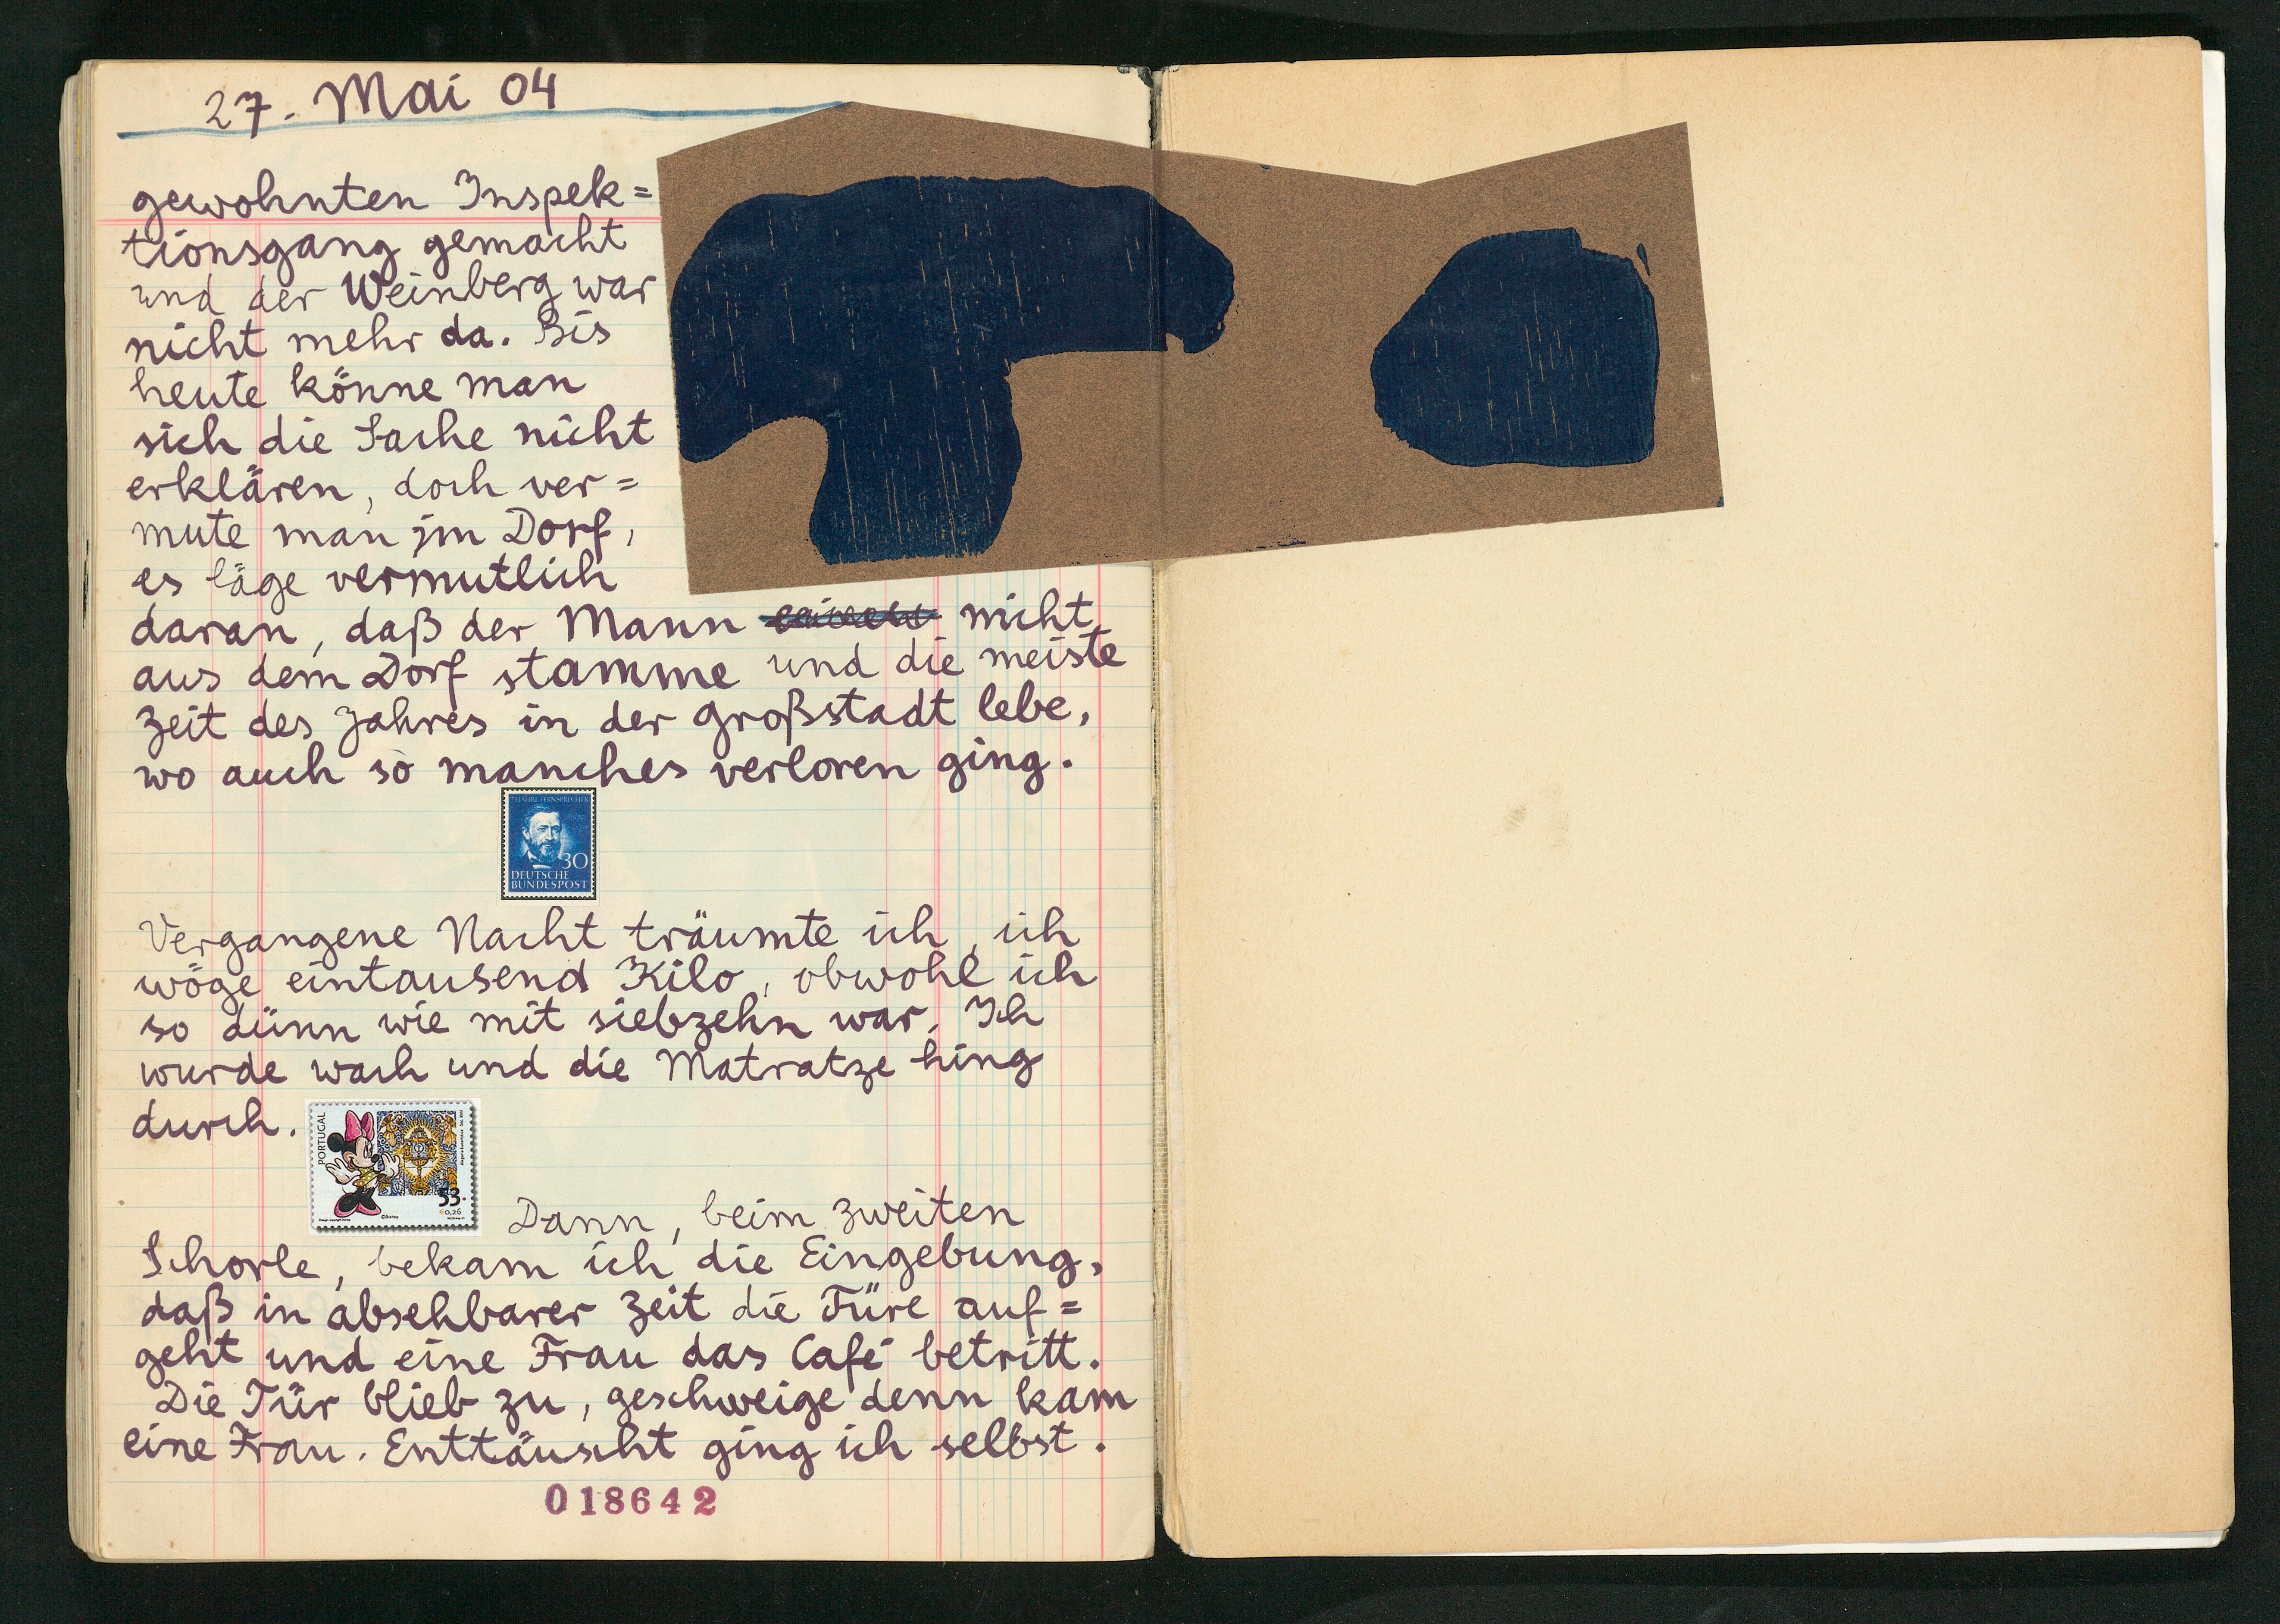 27. Mai 04
gewohnten Inspek=
tionsgang gemacht
und der Weinberg war
nicht mehr da. Bis
heute könne man
sich die Sache nicht
erklären, doch ver=
mute man im Dorf,
es läge vermutlich
daran, daß der Mann nicht
aus dem Dorf stamme und die meiste
Zeit des Jahres in der Großstadt lebe,
wo auch so manches verloren ging.
75 JAHRE FERNSPRECHER
30
DEUTSCHE
BUNDESPOST
Vergangene Nacht träumte ich, ich
wöge eintausend Kilo, obwohl ich
so dünn wie mit siebzehn war. Ich
wurde wach und die Matratze hing
durch.
PORTUGAL
53.
€0,26
©Disney
Dann, beim zweiten
Schorle, bekam ich die Eingebung,
daß in absehbarer Zeit die Türe auf=
geht und eine Frau das Café betritt.
Die Tür blieb zu, geschweige denn kam
eine Frau. Enttäuscht ging ich selbst.
018642